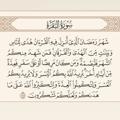 سُورَةُ البَقَرَةِ
شَهْرُ رَمَضَانَ الَّذِي أُنزِلَ فِيهِ الْقُرْءَانُ هُدًى لِّلنَّاسِ
وَبَيِّنَاتٍ مِّنَ الْهُدَىٰ وَالْفُرْقَانِ فَمَن شَهِدَ مِنكُمُ
الشَّهْرَ فَلْيَصُمْهُ وَمَن كَانَ مَرِيضًا أَوْ عَلَىٰ سَفَرٍ فَعِدَّةٌ
مِّنْ أَيَّامٍ أُخَرَ يُرِيدُ اللَّهُ بِكُمُ الْيُسْرَ وَلَا يُرِيدُ بِكُمُ
الْعُسْرَ وَلِتُكْمِلُوا الْعِدَّةَ وَلِتُكَبِّرُوا اللَّهَ عَلَىٰ مَا
هَدَىٰكُمْ وَلَعَلَّكُمْ تَشْكُرُونَ